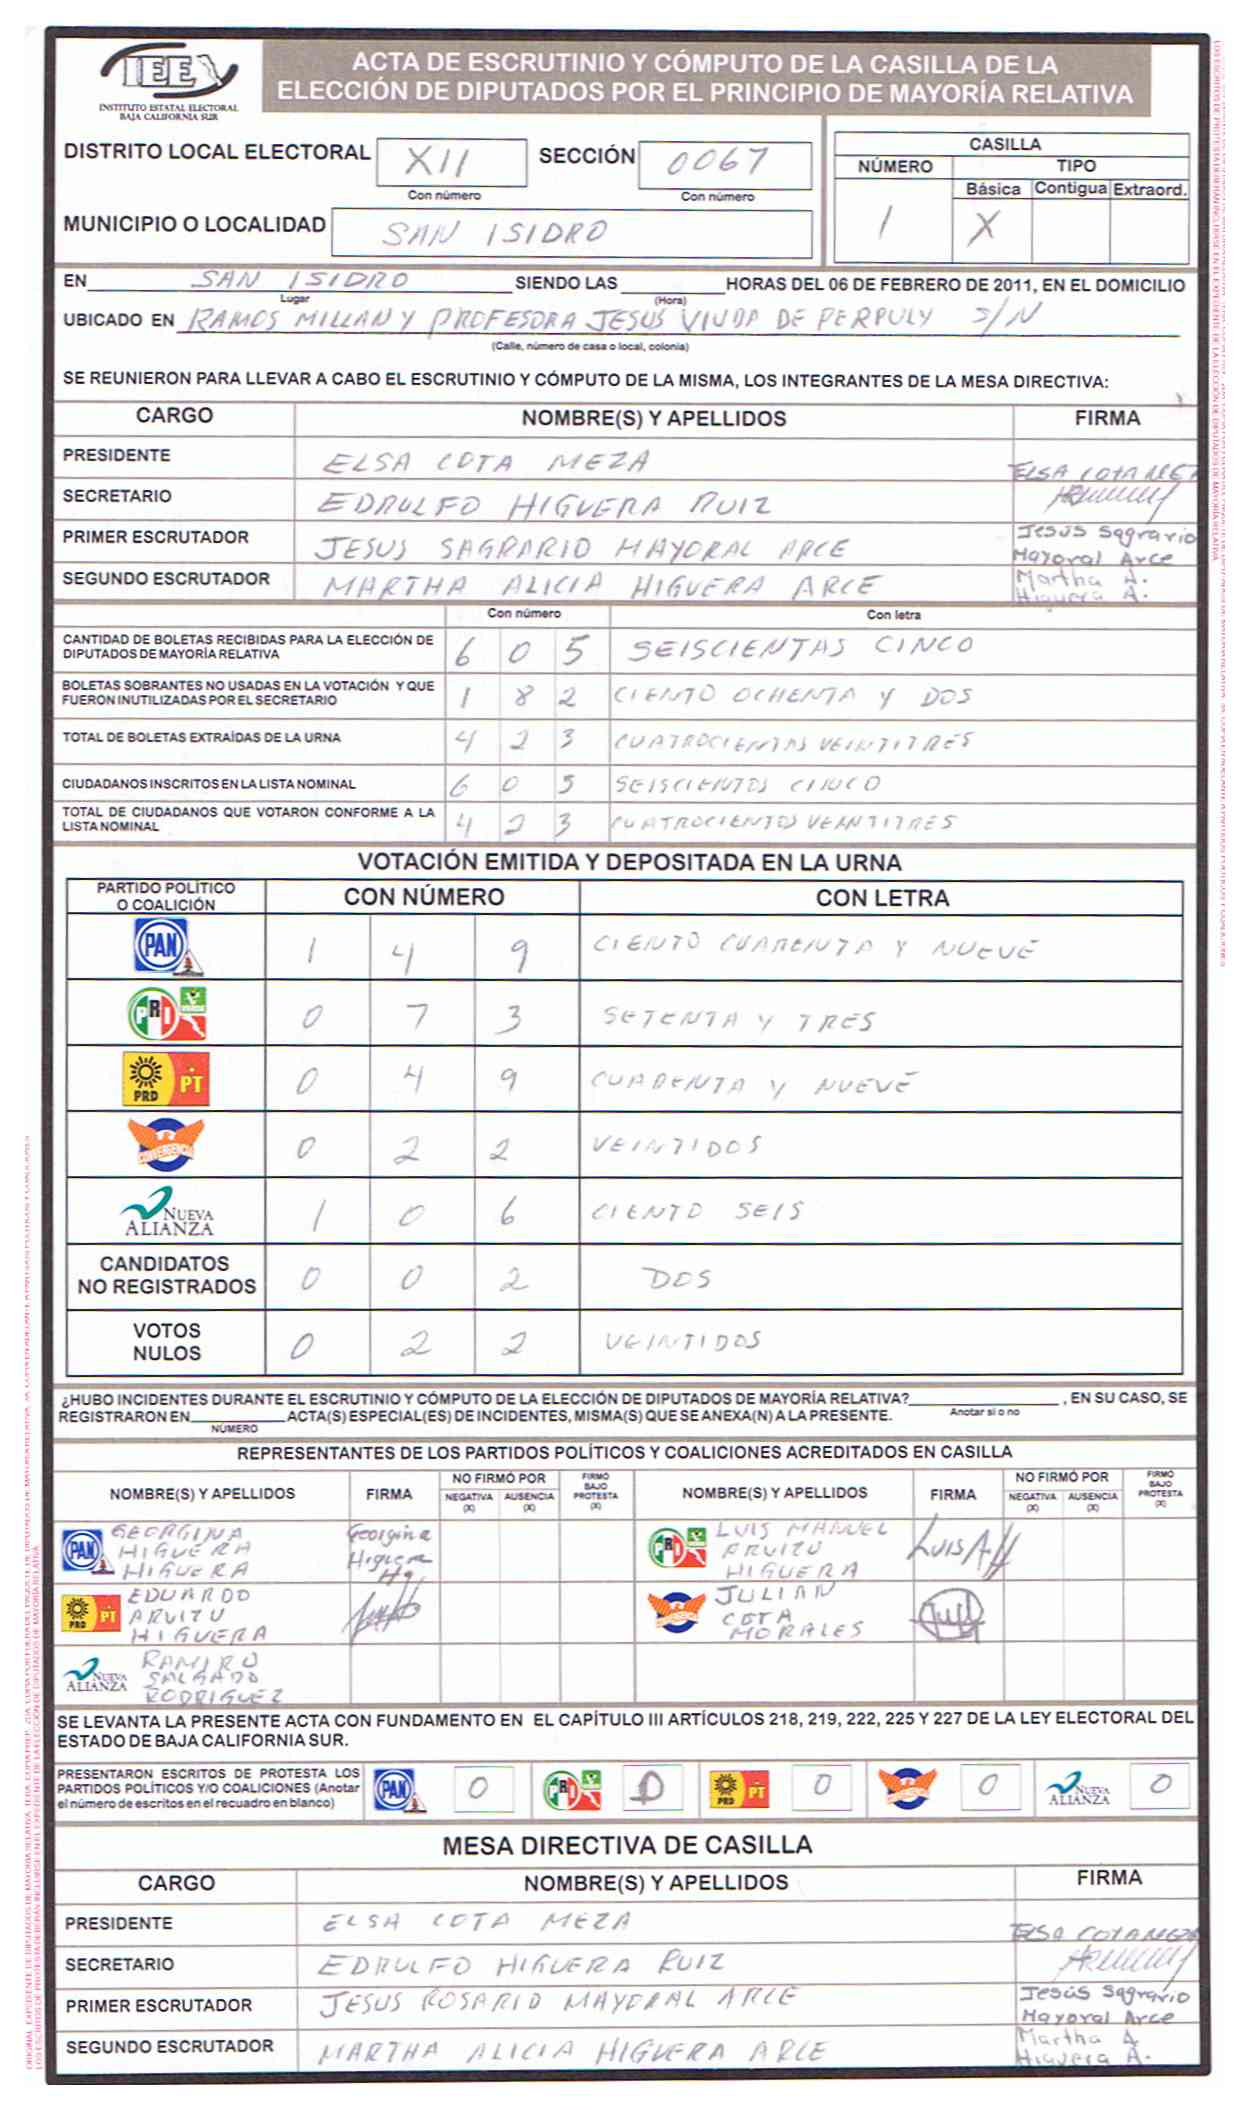 IEE
INSTITUTO ESTATAL ELECTORAL
BAJA CALIFORNIA SUR
ACTA DE ESCRUTINIO Y CÓMPUTO DE LA CASILLA DE LA
ELECCIÓN DE DIPUTADOS POR EL PRINCIPIO DE MAYORÍA RELATIVA
DISTRITO LOCAL ELECTORAL XII SECCIÓN 0067
Con número Con número
MUNICIPIO O LOCALIDAD SAN ISIDRO
CASILLA
NÚMERO TIPO
Básica Contigua Extraord.
1 X
EN SAN ISIDRO SIENDO LAS HORAS DEL 06 DE FEBRERO DE 2011, EN EL DOMICILIO
Lugar (Hora)
UBICADO EN RAMOS MILLAN Y PROFESORA JESUS VIUDA DE PERPULY S/N
(Calle, número de casa o local, colonia)
SE REUNIERON PARA LLEVAR A CABO EL ESCRUTINIO Y CÓMPUTO DE LA MISMA, LOS INTEGRANTES DE LA MESA DIRECTIVA:
CARGO NOMBRE(S) Y APELLIDOS FIRMA
PRESIDENTE ELSA COTA MEZA ELSA COTA MEZ
SECRETARIO EDRULFO HIGUERA RUIZ
PRIMER ESCRUTADOR JESUS SAGRARIO MAYORAL ARCE Jesus Sagrario
Mayoral Arce
SEGUNDO ESCRUTADOR MARTHA ALICIA HIGUERA ARCE Martha A.
Higuera A.
Con número Con letra
CANTIDAD DE BOLETAS RECIBIDAS PARA LA ELECCIÓN DE
DIPUTADOS DE MAYORÍA RELATIVA 6 0 5 SEISCIENTAS CINCO
BOLETAS SOBRANTES NO USADAS EN LA VOTACIÓN Y QUE
FUERON INUTILIZADAS POR EL SECRETARIO 1 8 2 CIENTO OCHENTA Y DOS
TOTAL DE BOLETAS EXTRAÍDAS DE LA URNA 4 2 3 CUATROCIENTAS VEINTITRES
CIUDADANOS INSCRITOS EN LA LISTA NOMINAL 6 0 5 SEISCIENTOS CINCO
TOTAL DE CIUDADANOS QUE VOTARON CONFORME A LA
LISTA NOMINAL 4 2 3 CUATROCIENTOS VEANTITRES
VOTACIÓN EMITIDA Y DEPOSITADA EN LA URNA
PARTIDO POLÍTICO
O COALICIÓN CON NÚMERO CON LETRA
PAN 1 4 9 CIENTO CUARENTA Y NUEVE
PRI VERDE 0 7 3 SETENTA Y TRES
PRD PT 0 4 9 CUARENTA Y NUEVE
CONVERGENCIA 0 2 2 VEINTIDOS
NUEVA ALIANZA 1 0 6 CIENTO SEIS
CANDIDATOS
NO REGISTRADOS 0 0 2 DOS
VOTOS
NULOS 0 2 2 VEINTIDOS
¿HUBO INCIDENTES DURANTE EL ESCRUTINIO Y CÓMPUTO DE LA ELECCIÓN DE DIPUTADOS DE MAYORÍA RELATIVA? , EN SU CASO, SE
Anotar si o no
REGISTRARON EN ACTA(S) ESPECIAL(ES) DE INCIDENTES, MISMA(S) QUE SE ANEXA(N) A LA PRESENTE.
NÚMERO
REPRESENTANTES DE LOS PARTIDOS POLÍTICOS Y COALICIONES ACREDITADOS EN CASILLA
NOMBRE(S) Y APELLIDOS FIRMA NO FIRMÓ POR NEGATIVA (X) AUSENCIA (X) FIRMÓ BAJO PROTESTA (X) NOMBRE(S) Y APELLIDOS FIRMA NO FIRMÓ POR NEGATIVA (X) AUSENCIA (X) FIRMÓ BAJO PROTESTA (X)
PAN GEORGINA HIGUERA HIGUERA Georgina Higuera Hg. PRI LUIS MANUEL ARVIZU HIGUERA LUIS
PRD PT EDUARDO ARVIZU HIGUERA CONVERGENCIA JULIAN COTA MORALES
NUEVA ALIANZA RAMIRO SALGADO RODRIGUEZ
SE LEVANTA LA PRESENTE ACTA CON FUNDAMENTO EN EL CAPÍTULO III ARTÍCULOS 218, 219, 222, 225 Y 227 DE LA LEY ELECTORAL DEL
ESTADO DE BAJA CALIFORNIA SUR.
PRESENTARON ESCRITOS DE PROTESTA LOS
PARTIDOS POLÍTICOS Y/O COALICIONES (Anotar
el número de escritos en el recuadro en blanco)
PAN 0 PRI 0 PRD PT 0 CONVERGENCIA 0 NUEVA ALIANZA 0
MESA DIRECTIVA DE CASILLA
CARGO NOMBRE(S) Y APELLIDOS FIRMA
PRESIDENTE ELSA COTA MEZA ELSA COTA MEZA
SECRETARIO EDRULFO HIGUERA RUIZ
PRIMER ESCRUTADOR JESUS ROSARIO MAYORAL ARCE Jesús Sagrario
Mayoral Arce
SEGUNDO ESCRUTADOR MARTHA ALICIA HIGUERA ARCE Martha A
Higuera A.